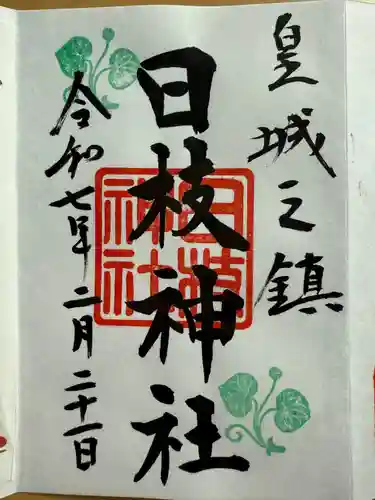 皇城之鎮
日枝神社
日枝神社
令和七年二月二十一日